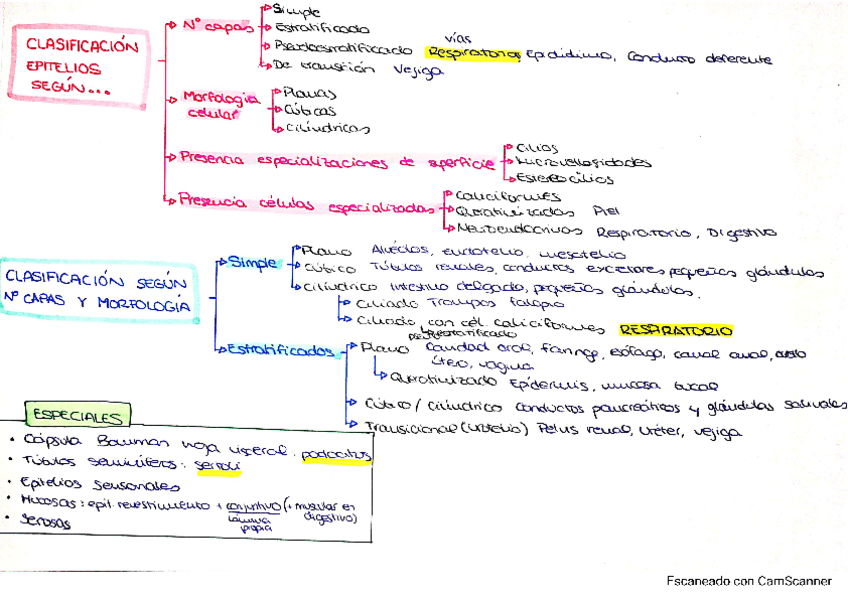 CLASIFICACIÓN EPITELIOS SEGÚN...
Nº capas
Simple
Estratificado
Pseudoestratificado vías Respiratorias, Epidídimo, Conducto deferente
De transición Vejiga
Morfología celular
Planas
Cúbicas
Cilíndricas
Presencia especializaciones de superficie
Cilios
Microvellosidades
Estereocilios
Presencia células especializadas
Caliciformes
Queratinizadas Piel
Neuroendocrinas Respiratorio, Digestivo
CLASIFICACIÓN SEGÚN Nº CAPAS Y MORFOLOGÍA
Simple
Plano Alvéolos, endotelio, mesotelio
Cúbico Túbulos renales, conductos excretores pequeños glándulas
Cilíndrico Intestino delgado, pequeños glándulas.
Ciliado Trompas falopio
Ciliado con cél. caliciformes RESPIRATORIO
pseudoestratificado
Estratificados
Plano Cavidad oral, faringe, esófago, canal anal,
útero, vagina
Queratinizado Epidermis, mucosa bucal
Cúbico / Cilíndrico Conductos pancreáticos y glándulas salivales
Transicional (Urotelio) Pelvis renal, Uréter, vejiga
ESPECIALES
• Cápsula Bowman hoja visceral. podocitos
• Túbulos seminíferos: sertoli
• Epitelios sensoriales
• Mucosas: epit. revestimiento + conjuntivo (+ muscular en digestivo)
lámina propia
• Serosas
Escaneado con CamScanner